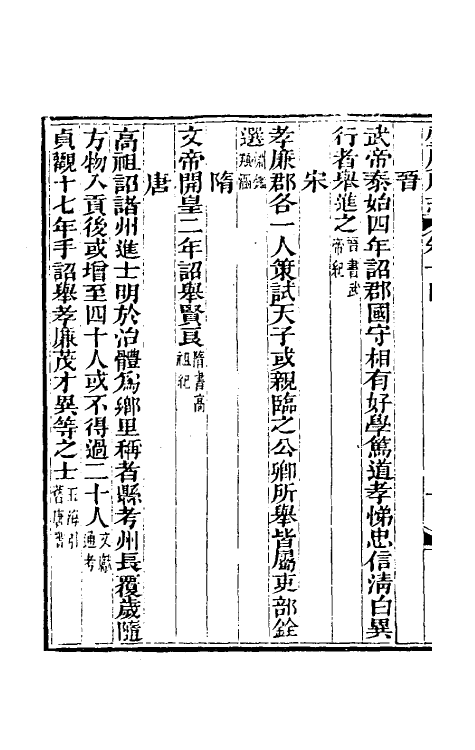 晉
武帝泰始四年詔郡國守相有好學篤道孝悌忠信清白異
行者舉進之晉書武帝紀
宋
孝廉郡各一人策試天子或親臨之公卿所舉皆屬吏部銓
選淵鑑類函
隋
文帝開皇二年詔舉賢良隋書高祖紀
唐
高祖詔諸州進士明於治體為鄉里稱者縣考州長覆歲隨
方物入貢後或增至四十人或不得過二十人文獻通考
貞觀十七年手詔舉孝廉茂才異等之士玉海引舊唐書